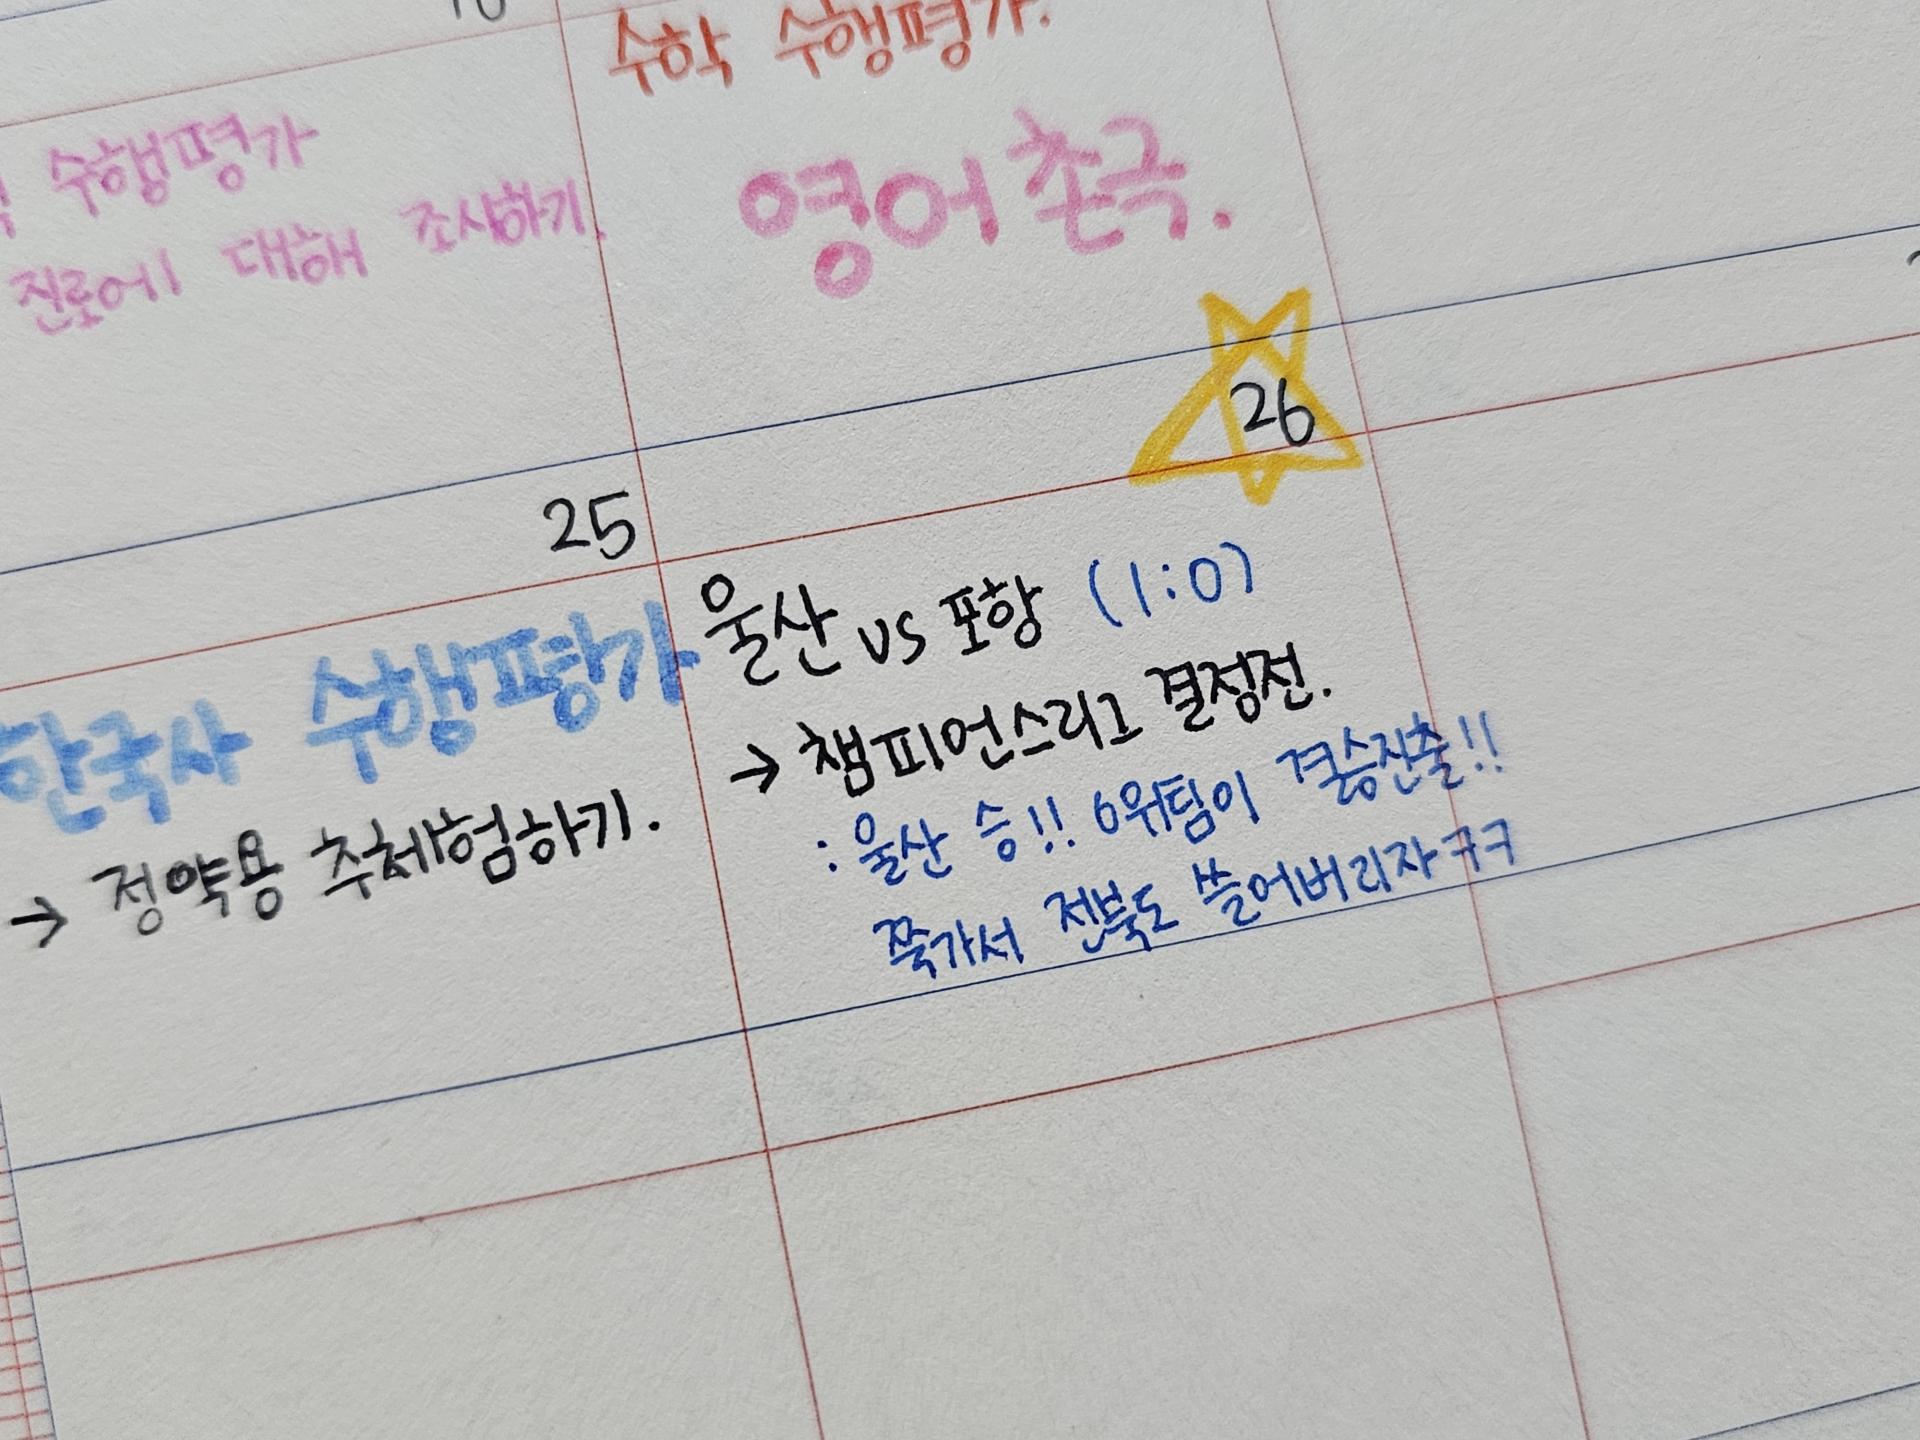 수학 수행평가.
영어 촌극.
수행평가
진로에 대해 조사하기.
25
한국사 수행평가
→ 정약용 추체험하기.
26
울산 vs 포항 (1:0)
→ 챔피언스리그 결정전.
: 울산 승!! 6위팀이 결승진출!!
쭉가서 전북도 쓸어버리자 ㅋㅋ